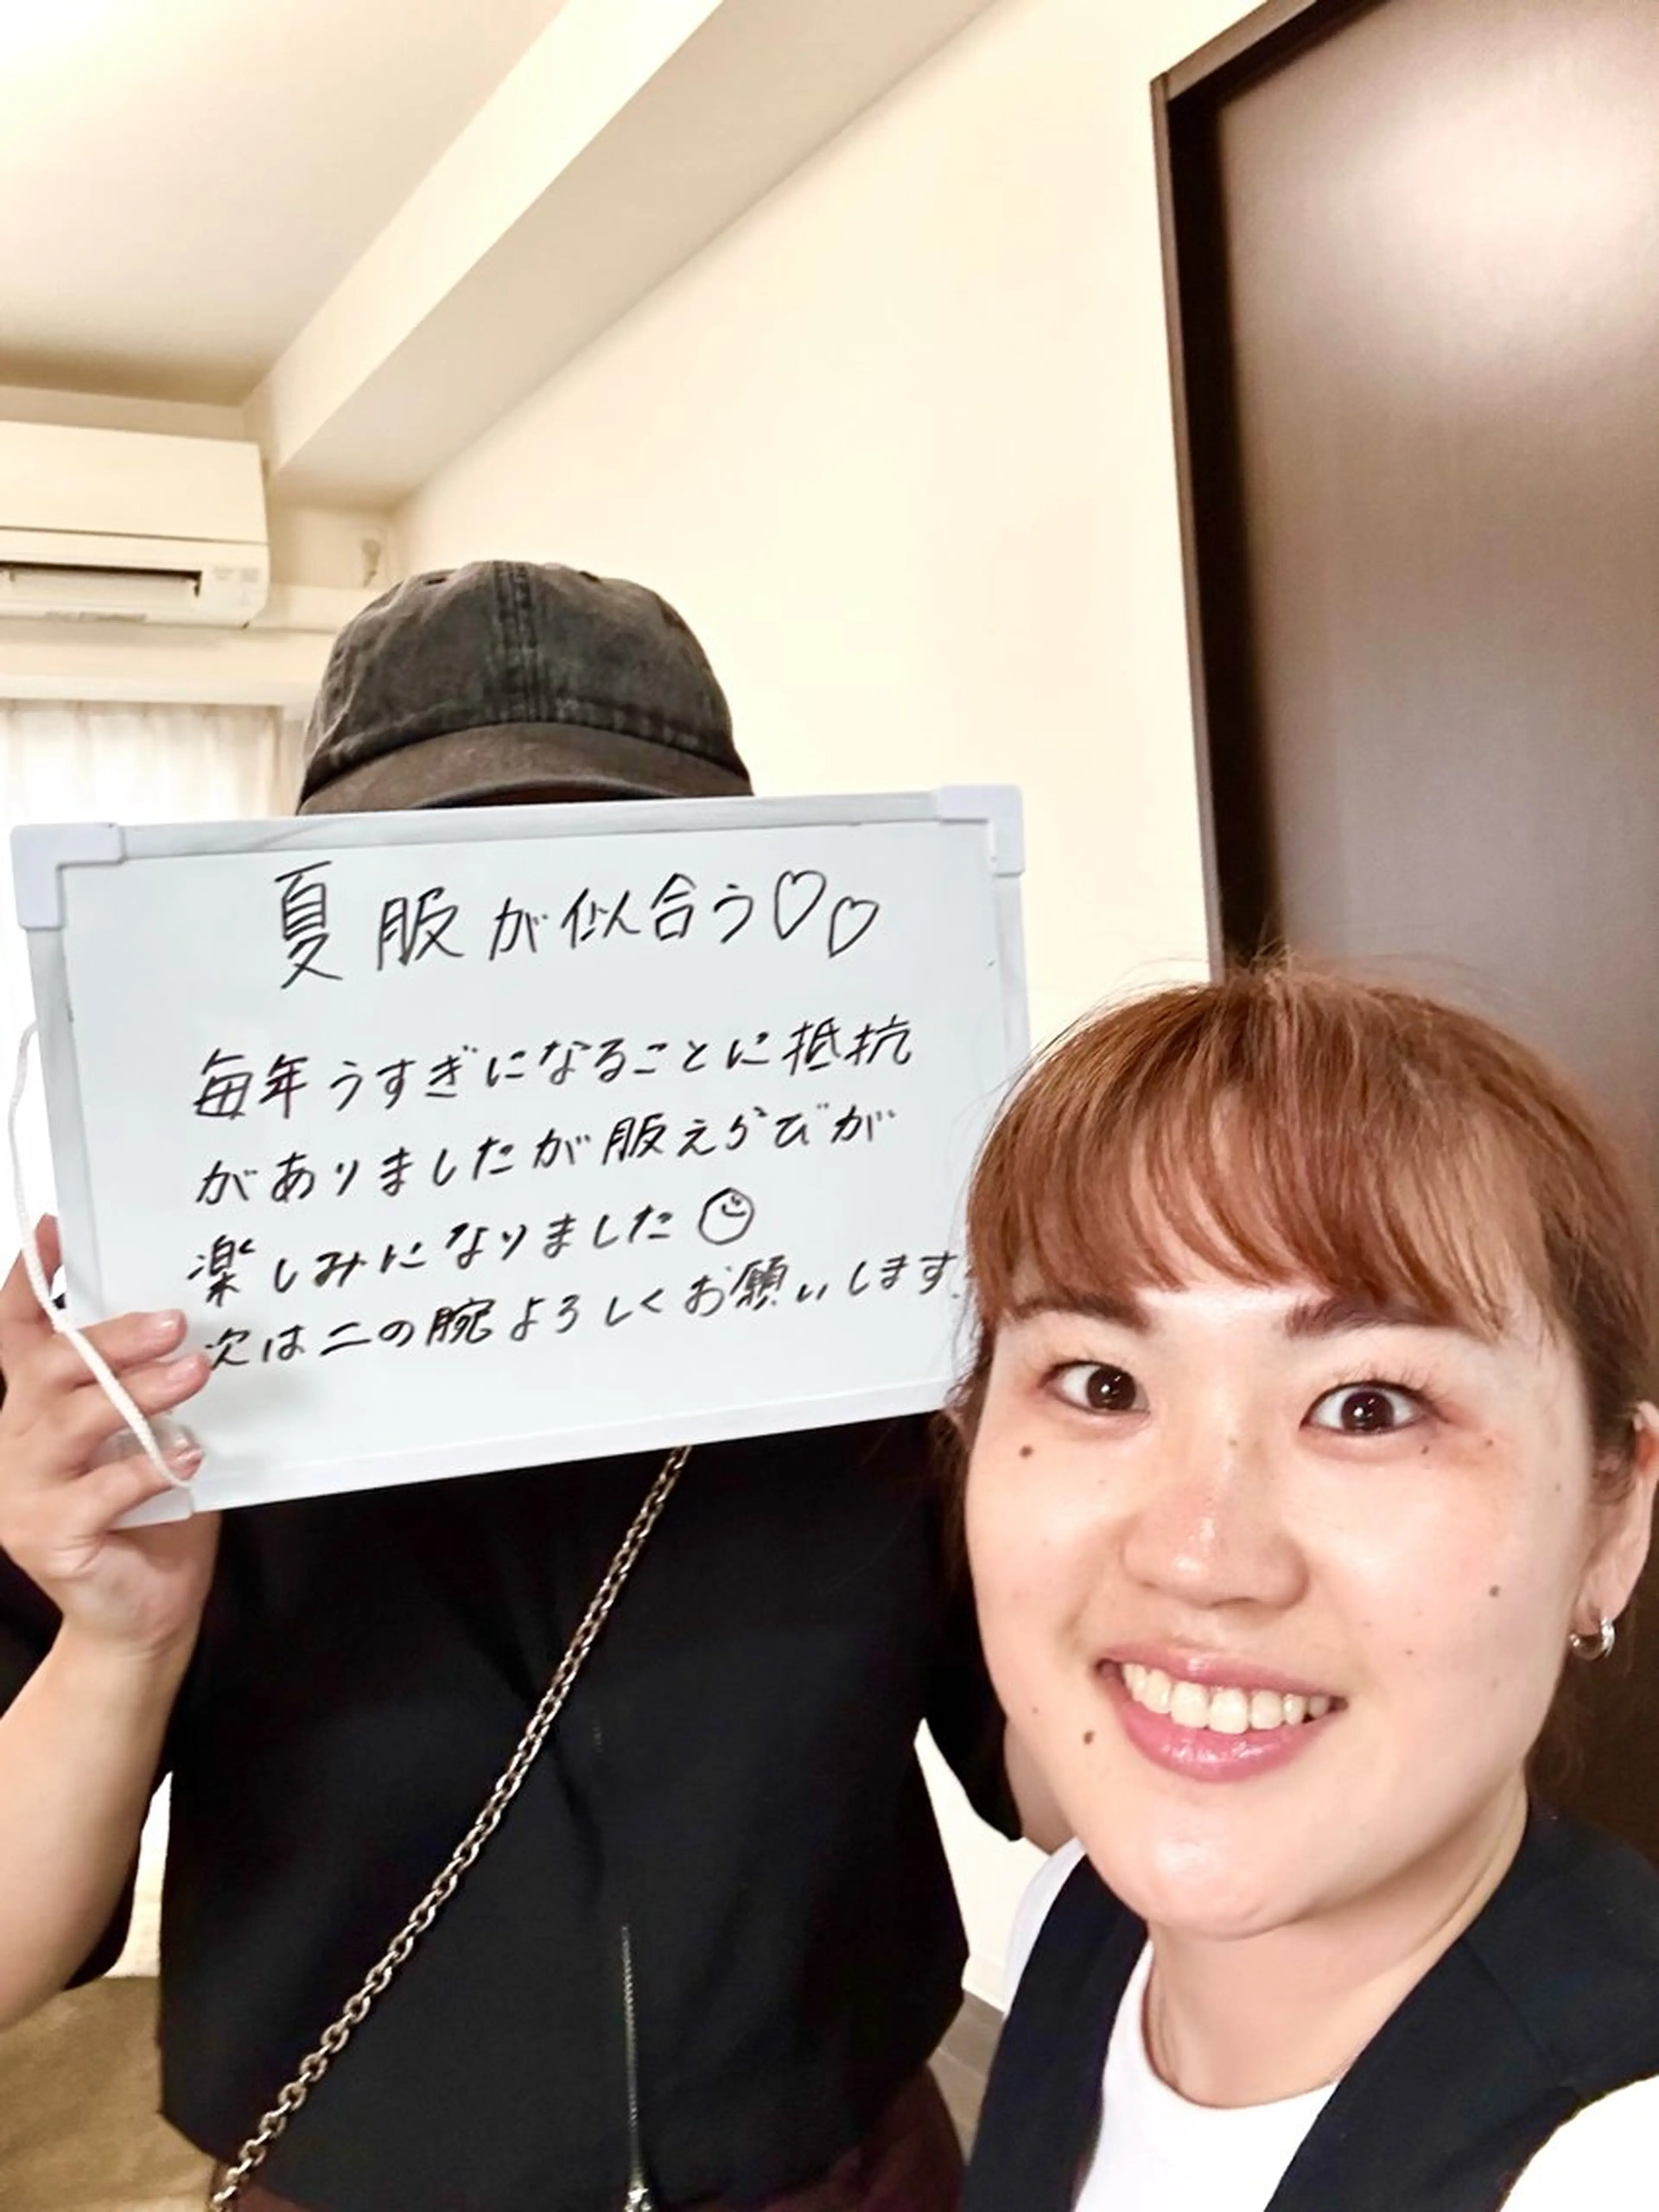 夏服が似合う♡♡
毎年うすぎになることに抵抗
がありましたが服えらびが
楽しみになりました
次は二の腕よろしくお願いします